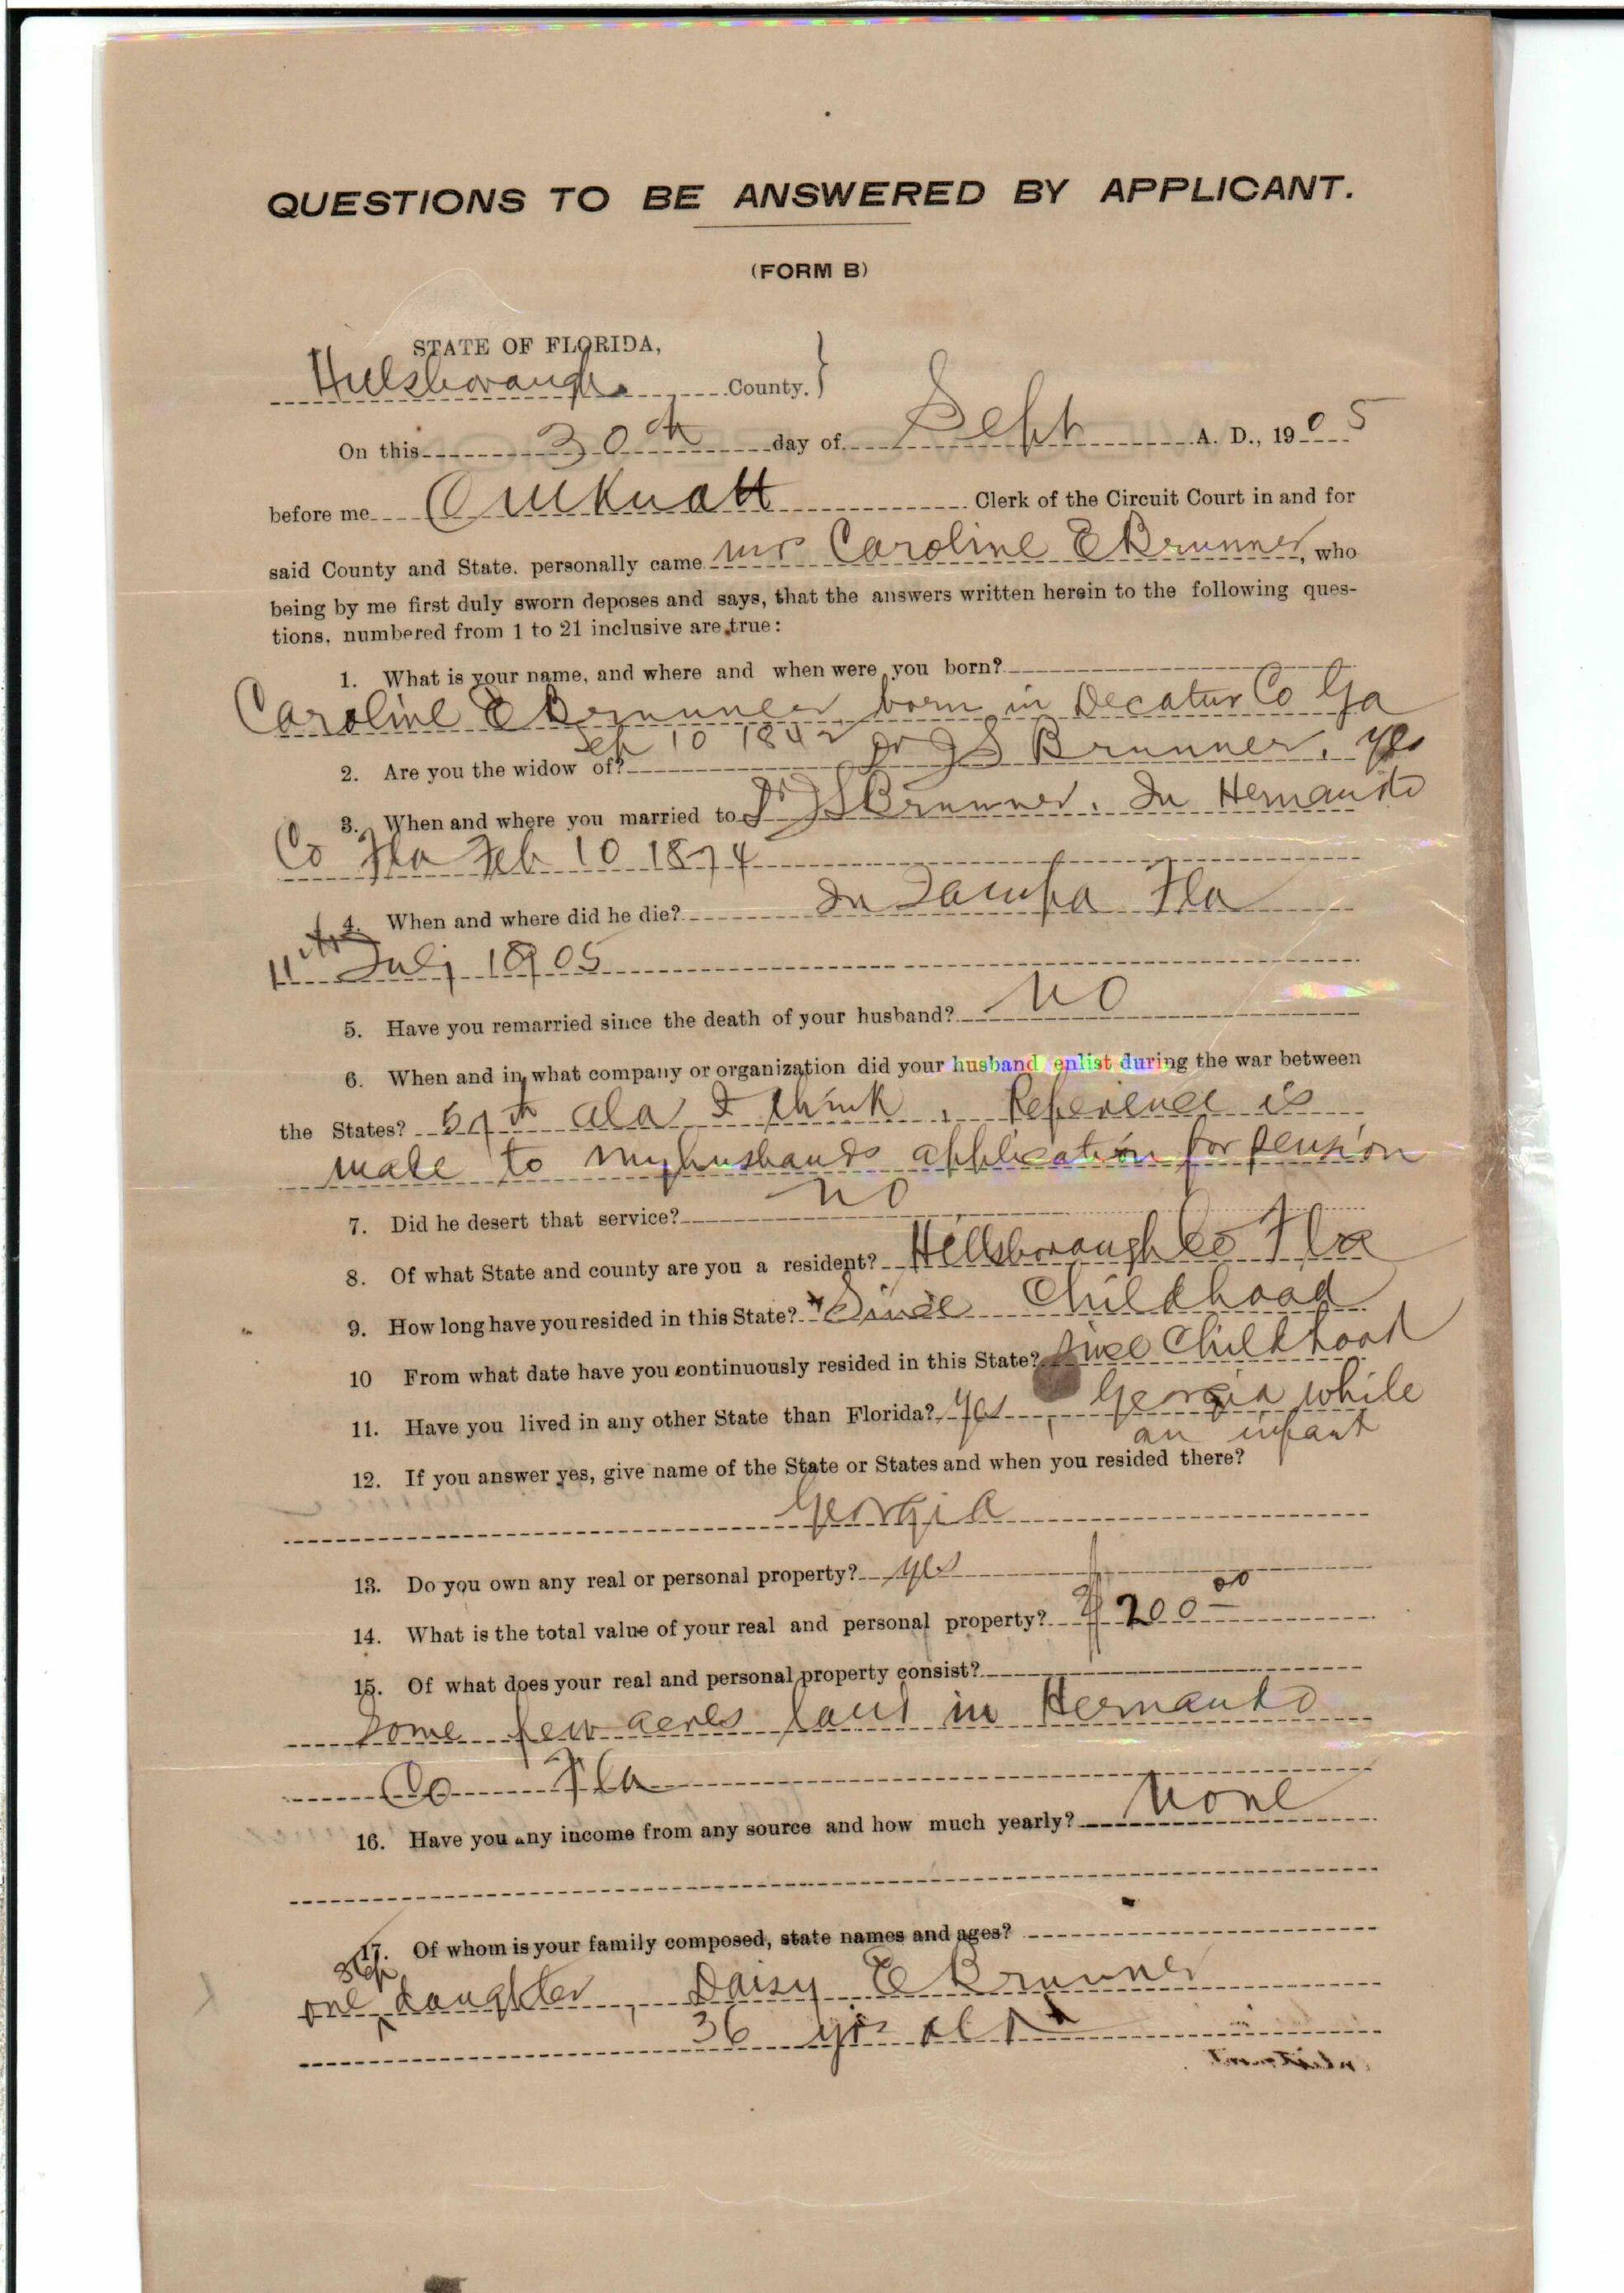 QUESTIONS TO BE ANSWERED BY APPLICANT.
(FORM B)
STATE OF FLORIDA,
Hillsborough County.
On this 30th day of Sept A. D., 1905
before me Knott Clerk of the Circuit Court in and for
said County and State. personally came Mrs Caroline E Brunner, who
being by me first duly sworn deposes and says, that the answers written herein to the following ques-
tions, numbered from 1 to 21 inclusive are true:
1. What is your name, and where and when were you born?
Caroline E Brunner born in Decatur Co Ga
Sep 10 1842
2. Are you the widow of? Dr J S Brunner. Yes
3. When and where you married to Dr J S Brunner. In Hernando
Co Fla Feb 10 1874
4. When and where did he die? In Tampa Fla
11th July 1905
5. Have you remarried since the death of your husband? No
6. When and in what company or organization did your husband enlist during the war between
the States? 57th Ala I think. Reference is
made to my husbands application for pension
7. Did he desert that service? No
8. Of what State and county are you a resident? Hillsborough Co Fla
9. How long have you resided in this State? Since Childhood
10 From what date have you continuously resided in this State? Since Childhood
11. Have you lived in any other State than Florida? Yes, Georgia while
an infant
12. If you answer yes, give name of the State or States and when you resided there?
Georgia
13. Do you own any real or personal property? yes
14. What is the total value of your real and personal property? $200.00
15. Of what does your real and personal property consist?
Some few acres land in Hernando
Co Fla
16. Have you any income from any source and how much yearly? None
17. Of whom is your family composed, state names and ages?
one step daughter, Daisy E Brunner
36 yrs old